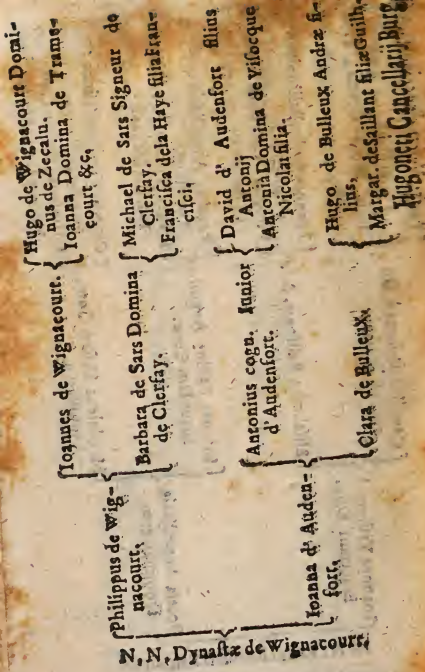 N. N. Dynastæ de Wignacourt.
Philippus de Wig-
nacourt.
Ioanna d' Auden-
fort.
Ioannes de Wignacourt.
Barbara de Sars Domina
de Clerfay.
Antonius cogn. Iunior
d' Audenfort.
Clara de Bulleux.
Hugo de Wignacourt Domi-
nus de Zecalu.
Ioanna Domina de Trame-
court &c.
Michael de Sars Signeur de
Clerfay.
Francisca dela Haye filia Fran-
cisci.
David d' Audenfort filius
Antonij
Antonia Domina de Visocque
Nicolai filia.
Hugo de Bulleux Andræ fi-
lius,
Margar. de Saillant filiæ Guilh.
Hugoneti Cancellarij Burg.